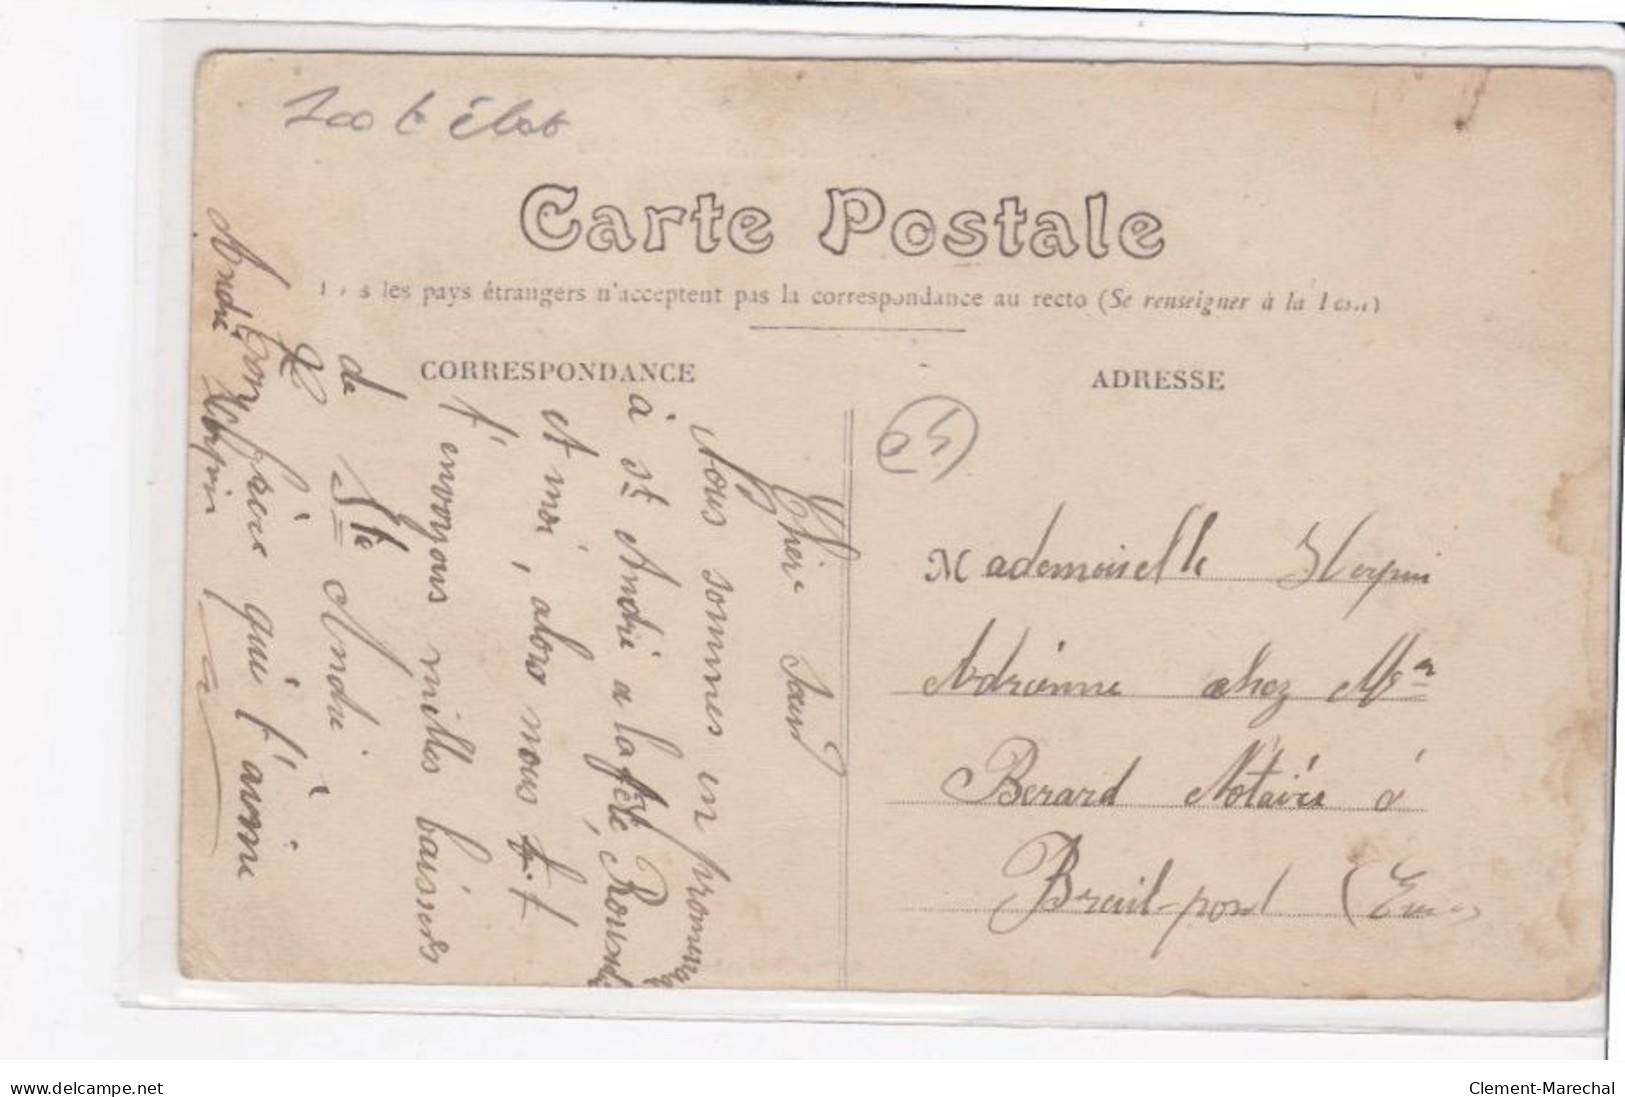 100 t. état
Carte Postale
les pays étrangers n'acceptent pas la correspondance au recto (Se renseigner à la
CORRESPONDANCE
ADRESSE
50
Chere Sœur
Nous sommes en promena
à St André a la fête, Rousse
et moi, alors nous
t'envoyons milles baisers
de Ste André
Ton frère qui t'aime
André Herpin
Mademoiselle Herpin
Adrienne chez Mr
Berard Notaire à
Breuil-pont (Eure)
www.delcampe.net
Clement-Marechal